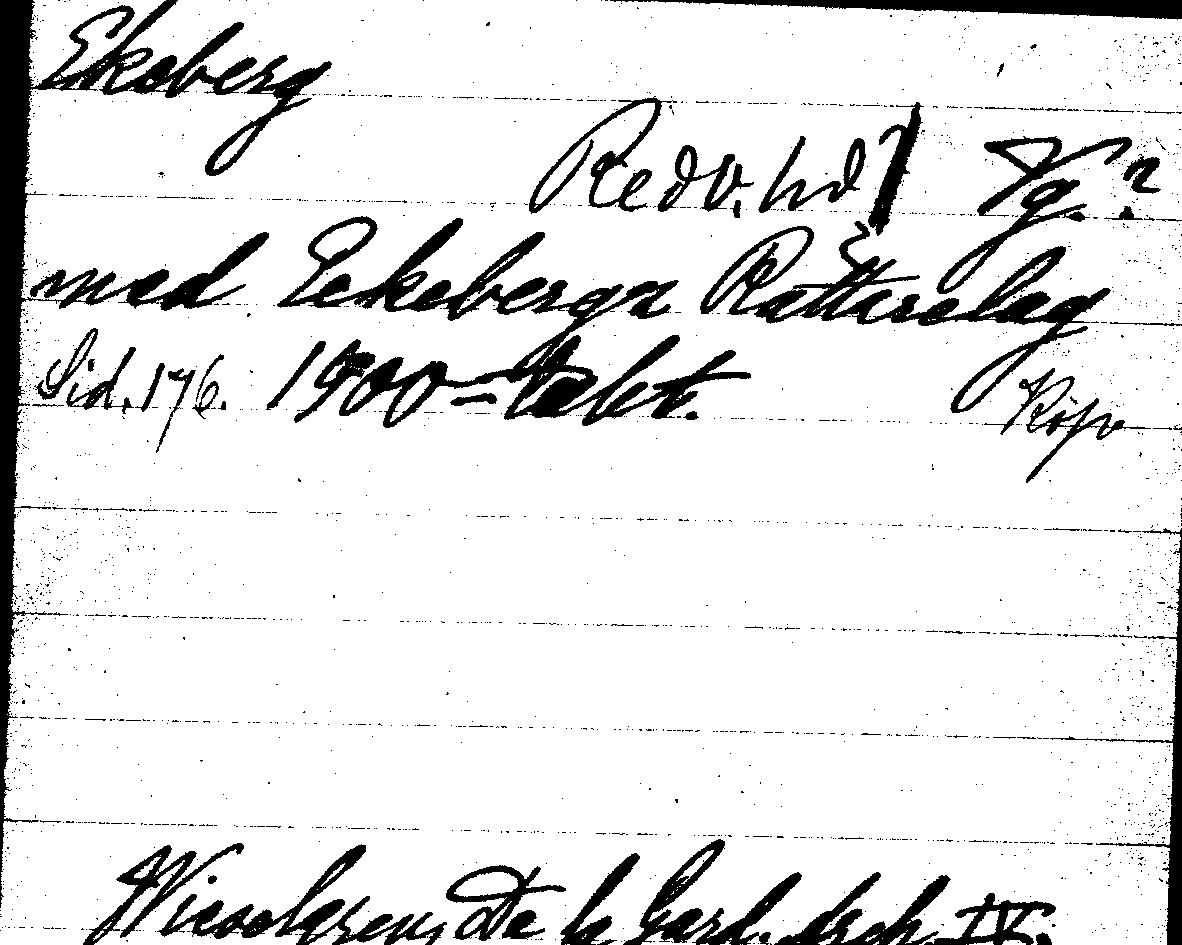 Ekeberg
Redv. hd Vg.?
med Eekeberga Rättarelag
Sid. 176. 1500-talet. Kop
Wieselgren, De la Gard. arch. IV.